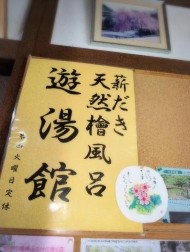 薪だき
天然檜風呂
遊湯館
火曜日定休